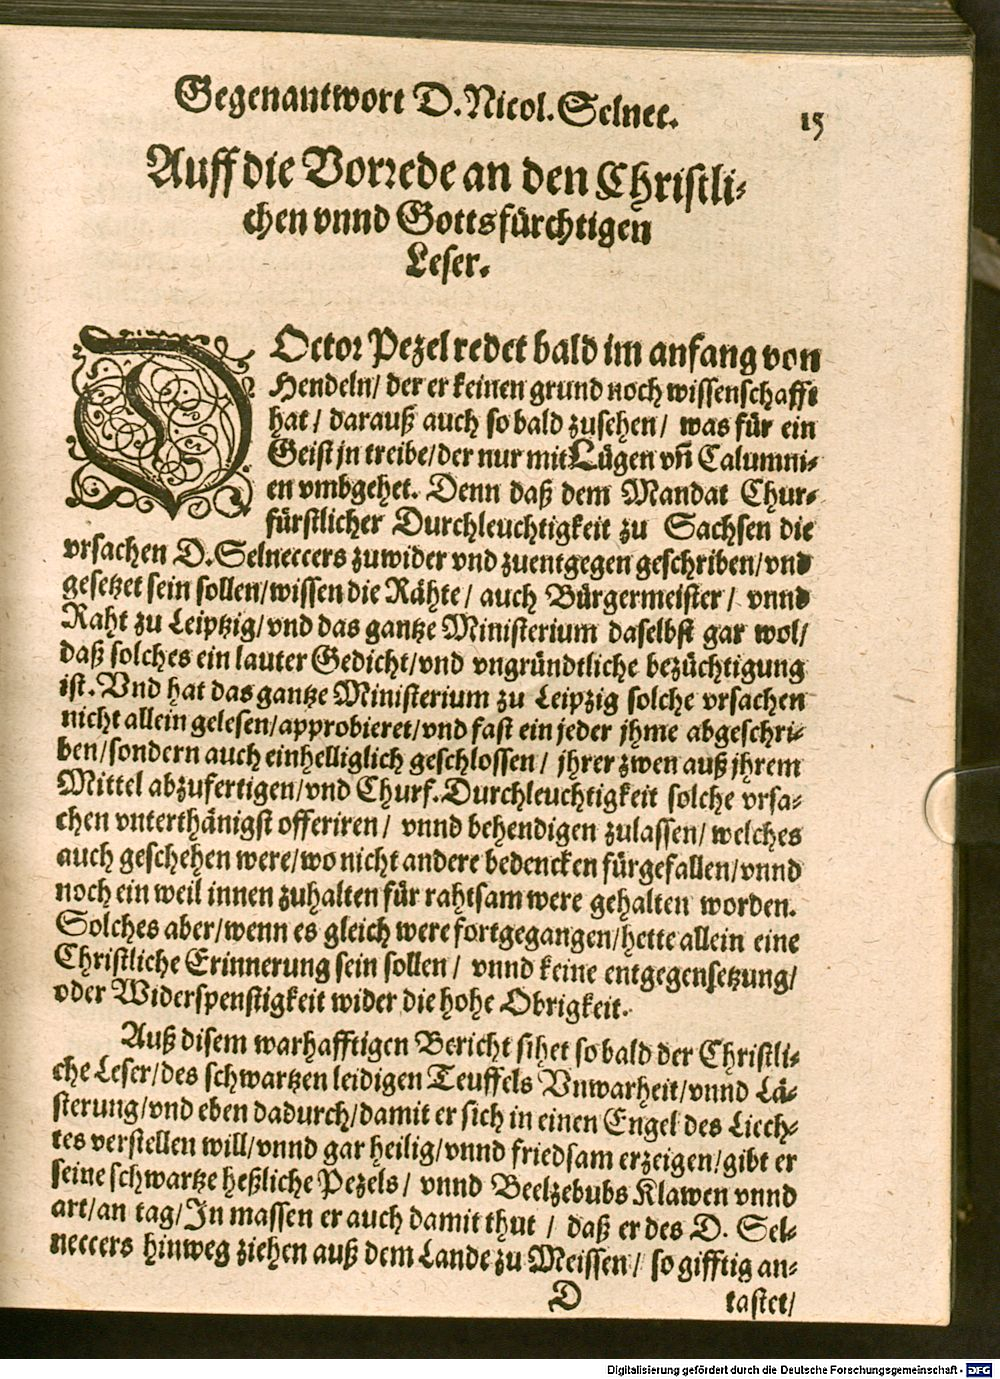 Gegenantwort D. Nicol. Selnec.
15
Auff die Vorrede an den Christli-
chen vnnd Gottsfürchtigen
Leser.
DOctor Pezel redet bald im anfang von
Hendeln/ der er keinen grund noch wissenschafft
hat/ darauß auch so bald zusehen/ was für ein
Geist jn treibe/ der nur mit Lügen vñ Calumni-
en vmbgehet. Denn daß dem Mandat Chur-
fürstlicher Durchleuchtigkeit zu Sachsen die
vrsachen D. Selneccers zuwider vnd zuentgegen geschriben/ vnd
gesetzet sein sollen/ wissen die Rähte/ auch Bürgermeister/ vnnd
Raht zu Leiptzig/ vnd das gantze Ministerium daselbst gar wol/
daß solches ein lauter Gedicht/ vnd vngründtliche bezüchtigung
ist. Vnd hat das gantze Ministerium zu Leipzig solche vrsachen
nicht allein gelesen/ approbieret/ vnd fast ein jeder jhme abgeschri-
ben/ sondern auch einhelliglich geschlossen/ jhrer zwen auß jhrem
Mittel abzufertigen/ vnd Churf. Durchleuchtigkeit solche vrsa-
chen vnterthänigst offeriren/ vnnd behendigen zulassen/ welches
auch geschehen were/ wo nicht andere bedencken fürgefallen/ vnnd
noch ein weil innen zuhalten für rahtsam were gehalten worden.
Solches aber/ wenn es gleich were fortgegangen/ hette allein eine
Christliche Erinnerung sein sollen/ vnnd keine entgegensetzung/
oder Widerspenstigkeit wider die hohe Obrigkeit.
Auß disem warhafftigen Bericht sihet so bald der Christli-
che Leser/ des schwartzen leidigen Teuffels Vnwarheit/ vnnd Lä-
sterung/ vnd eben dadurch/ damit er sich in einen Engel des Liech-
tes verstellen will/ vnnd gar heilig/ vnnd friedsam erzeigen/ gibt er
seine schwartze heßliche Pezels/ vnnd Beelzebubs Klawen vnnd
art/ an tag/ In massen er auch damit thut/ daß er des D. Sel-
neccers hinweg ziehen auß dem Lande zu Meissen/ so gifftig an-
D
tastet/
Digitalisierung gefördert durch die Deutsche Forschungsgemeinschaft - DFG